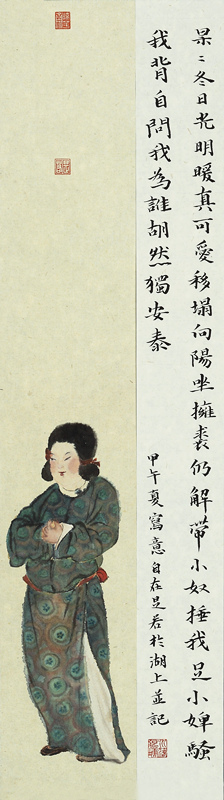 杲〻冬日光明暖真可愛移塌向陽坐擁裘仍解帶小奴捶我足小婢騷
我背自問我為誰胡然獨安泰
甲午夏寫意自在是若於湖上並記